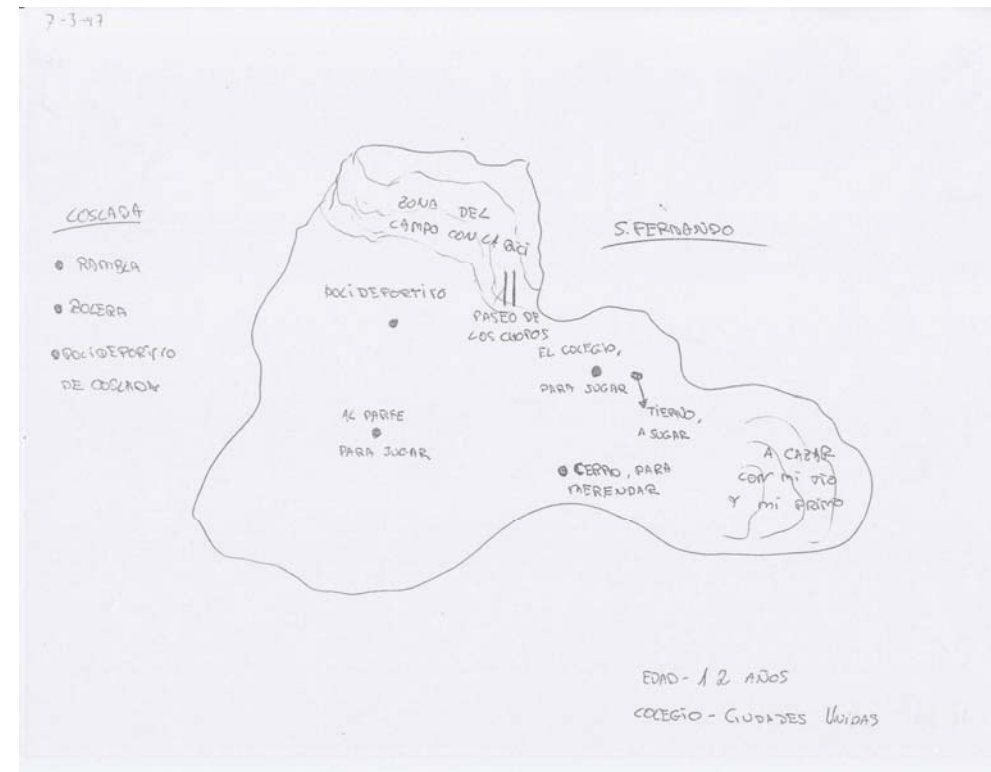 7-3-97
COSLADA
RAMBLA
BOLERA
POLIDEPORTIVO
DE COSLADA
ZONA DEL
CAMPO CON LA BICI
S. FERNANDO
POLIDEPORTIVO
PASEO DE
LOS CHOPOS
EL COLEGIO,
PARA JUGAR
TIERNO,
A JUGAR
AL PARFE
PARA JUGAR
CERRO, PARA
MERENDAR
A CAZAR
CON mi TIO
Y mi PRIMO
EDAD - 12 AÑOS
COLEGIO - CIUDADES UNIDAS